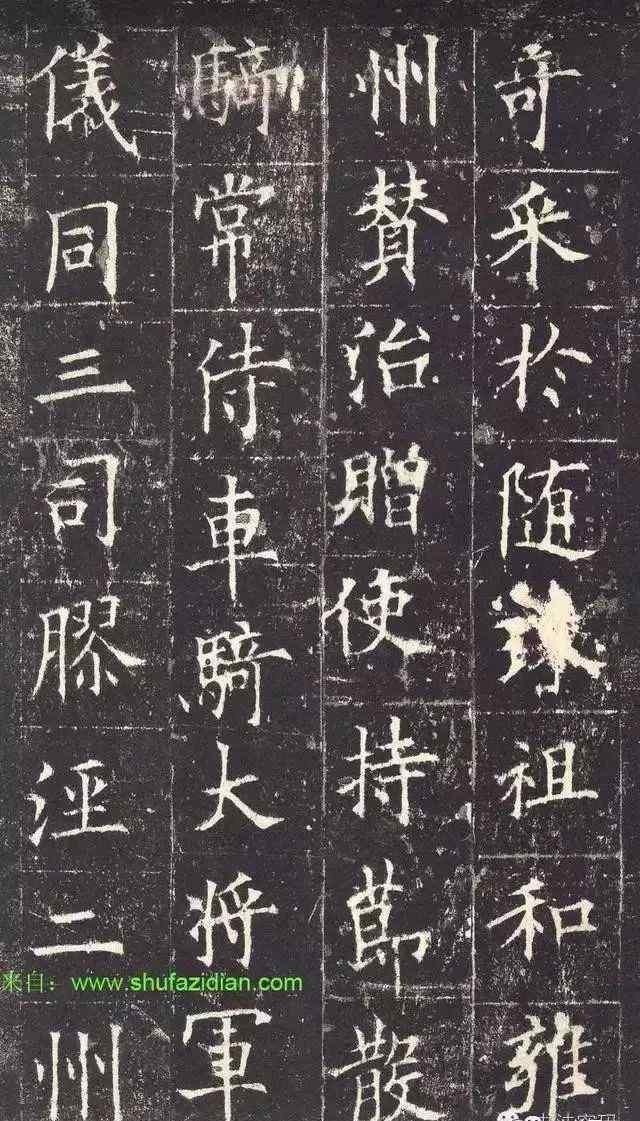 奇采於随祖和雍
州賛治贈使持節散
騎常侍車騎大将軍
儀同三司膠涇二州
来自：www.shufazidian.com